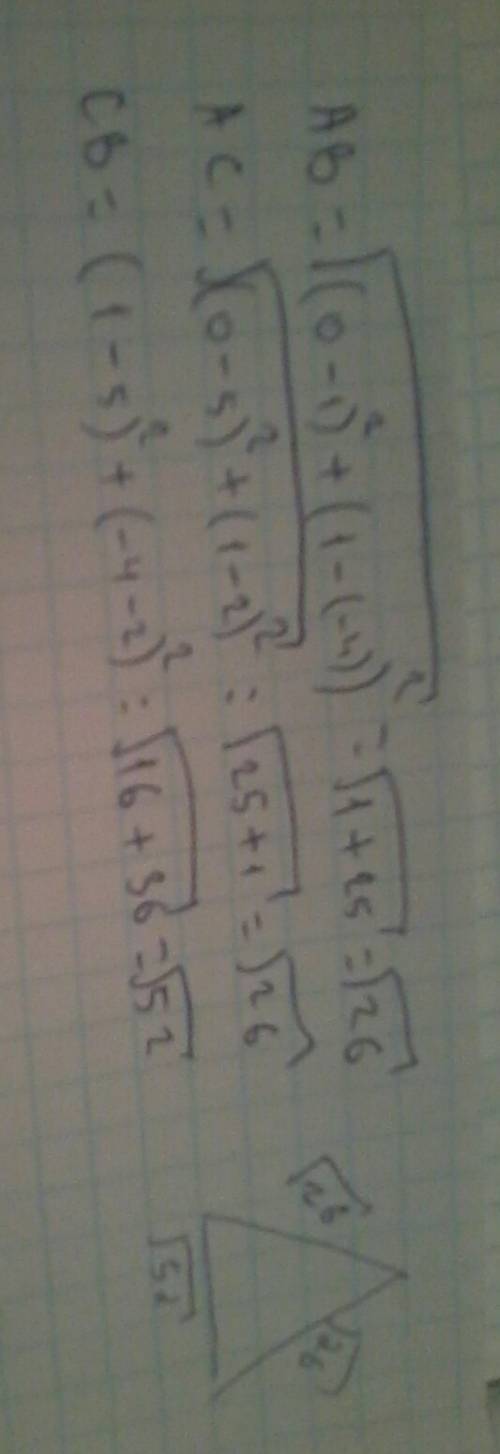 AB = √(0-1)² + (1-(-4))² = √1+25 = √26
AC = √(0-5)² + (1-2)² = √25+1 = √26
CB = (1-5)² + (-4-2)² = √16+36 = √52
√26
√26
√52